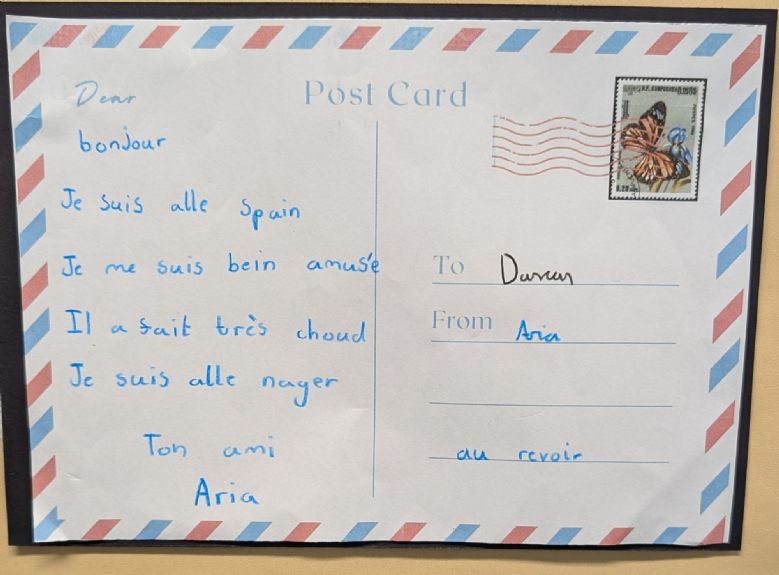 Dear
Post Card
bonjour
Je suis alle Spain
Je me suis bein amusé
Il a fait très choud
Je suis alle nager
Ton ami
Aria
To
From Aria
au revoir